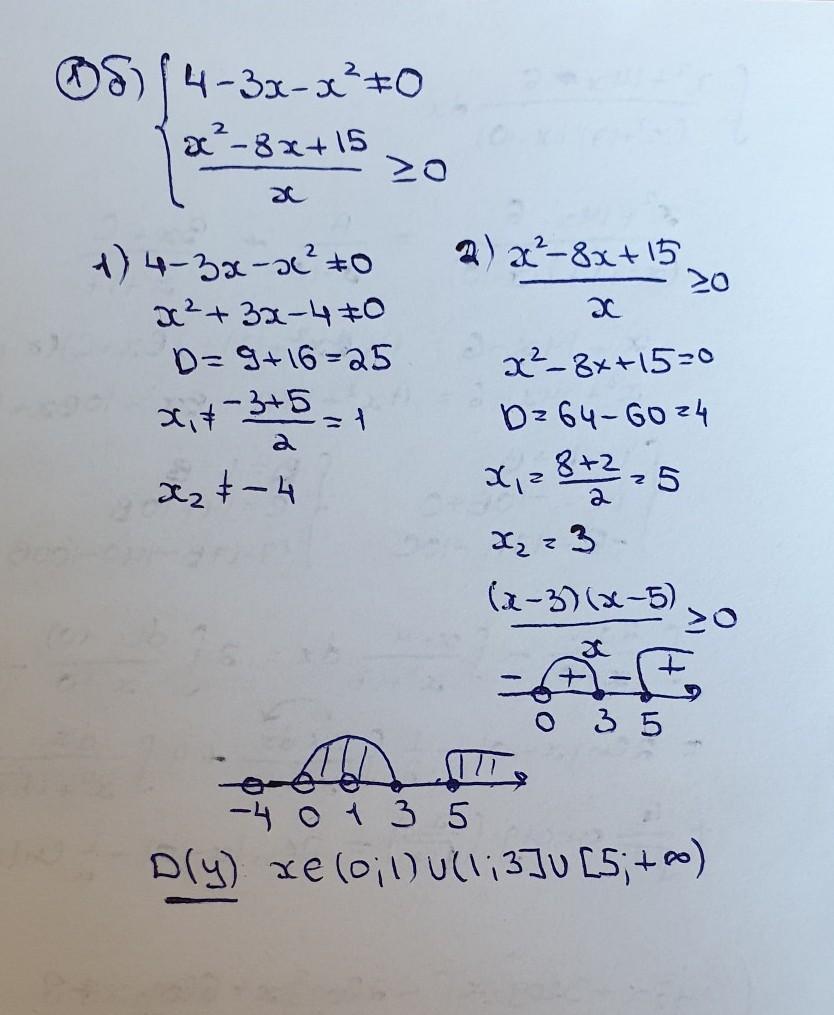 ① б) { 4 - 3x - x² ≠ 0
(x² - 8x + 15)/x ≥ 0
1) 4 - 3x - x² ≠ 0
x² + 3x - 4 ≠ 0
D = 9 + 16 = 25
x₁ ≠ (-3 + 5)/2 = 1
x₂ ≠ - 4
2) (x² - 8x + 15)/x ≥ 0
x² - 8x + 15 = 0
D = 64 - 60 = 4
x₁ = (8 + 2)/2 = 5
x₂ = 3
(x - 3)(x - 5)/x ≥ 0
- + - +
0 3 5
-4 0 1 3 5
D(y) x ∈ (0; 1) ∪ (1; 3] ∪ [5; +∞)